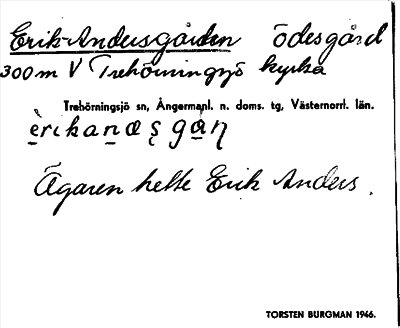 Erik-Andersgården ödesgård
300 m V Trehörningsjö kyrka
Trehörningsjö sn, Ångermanl. n. doms. tg, Västernorrl. län.
èrikanæṣgán
Ägaren hette Erik Anders.
TORSTEN BURGMAN 1946.